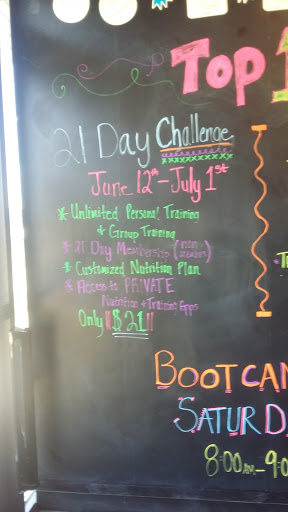 Top 1
21 Day Challenge
June 12th - July 1st
* Unlimited Personal Training
+ Group Training
* 21 Day Membership (non members)
* Customized Nutrition Plan
* Access to PRIVATE
Nutrition + Training Apps
Only !!$21!!
BOOTCAM
SATURD
8:00AM-9:0